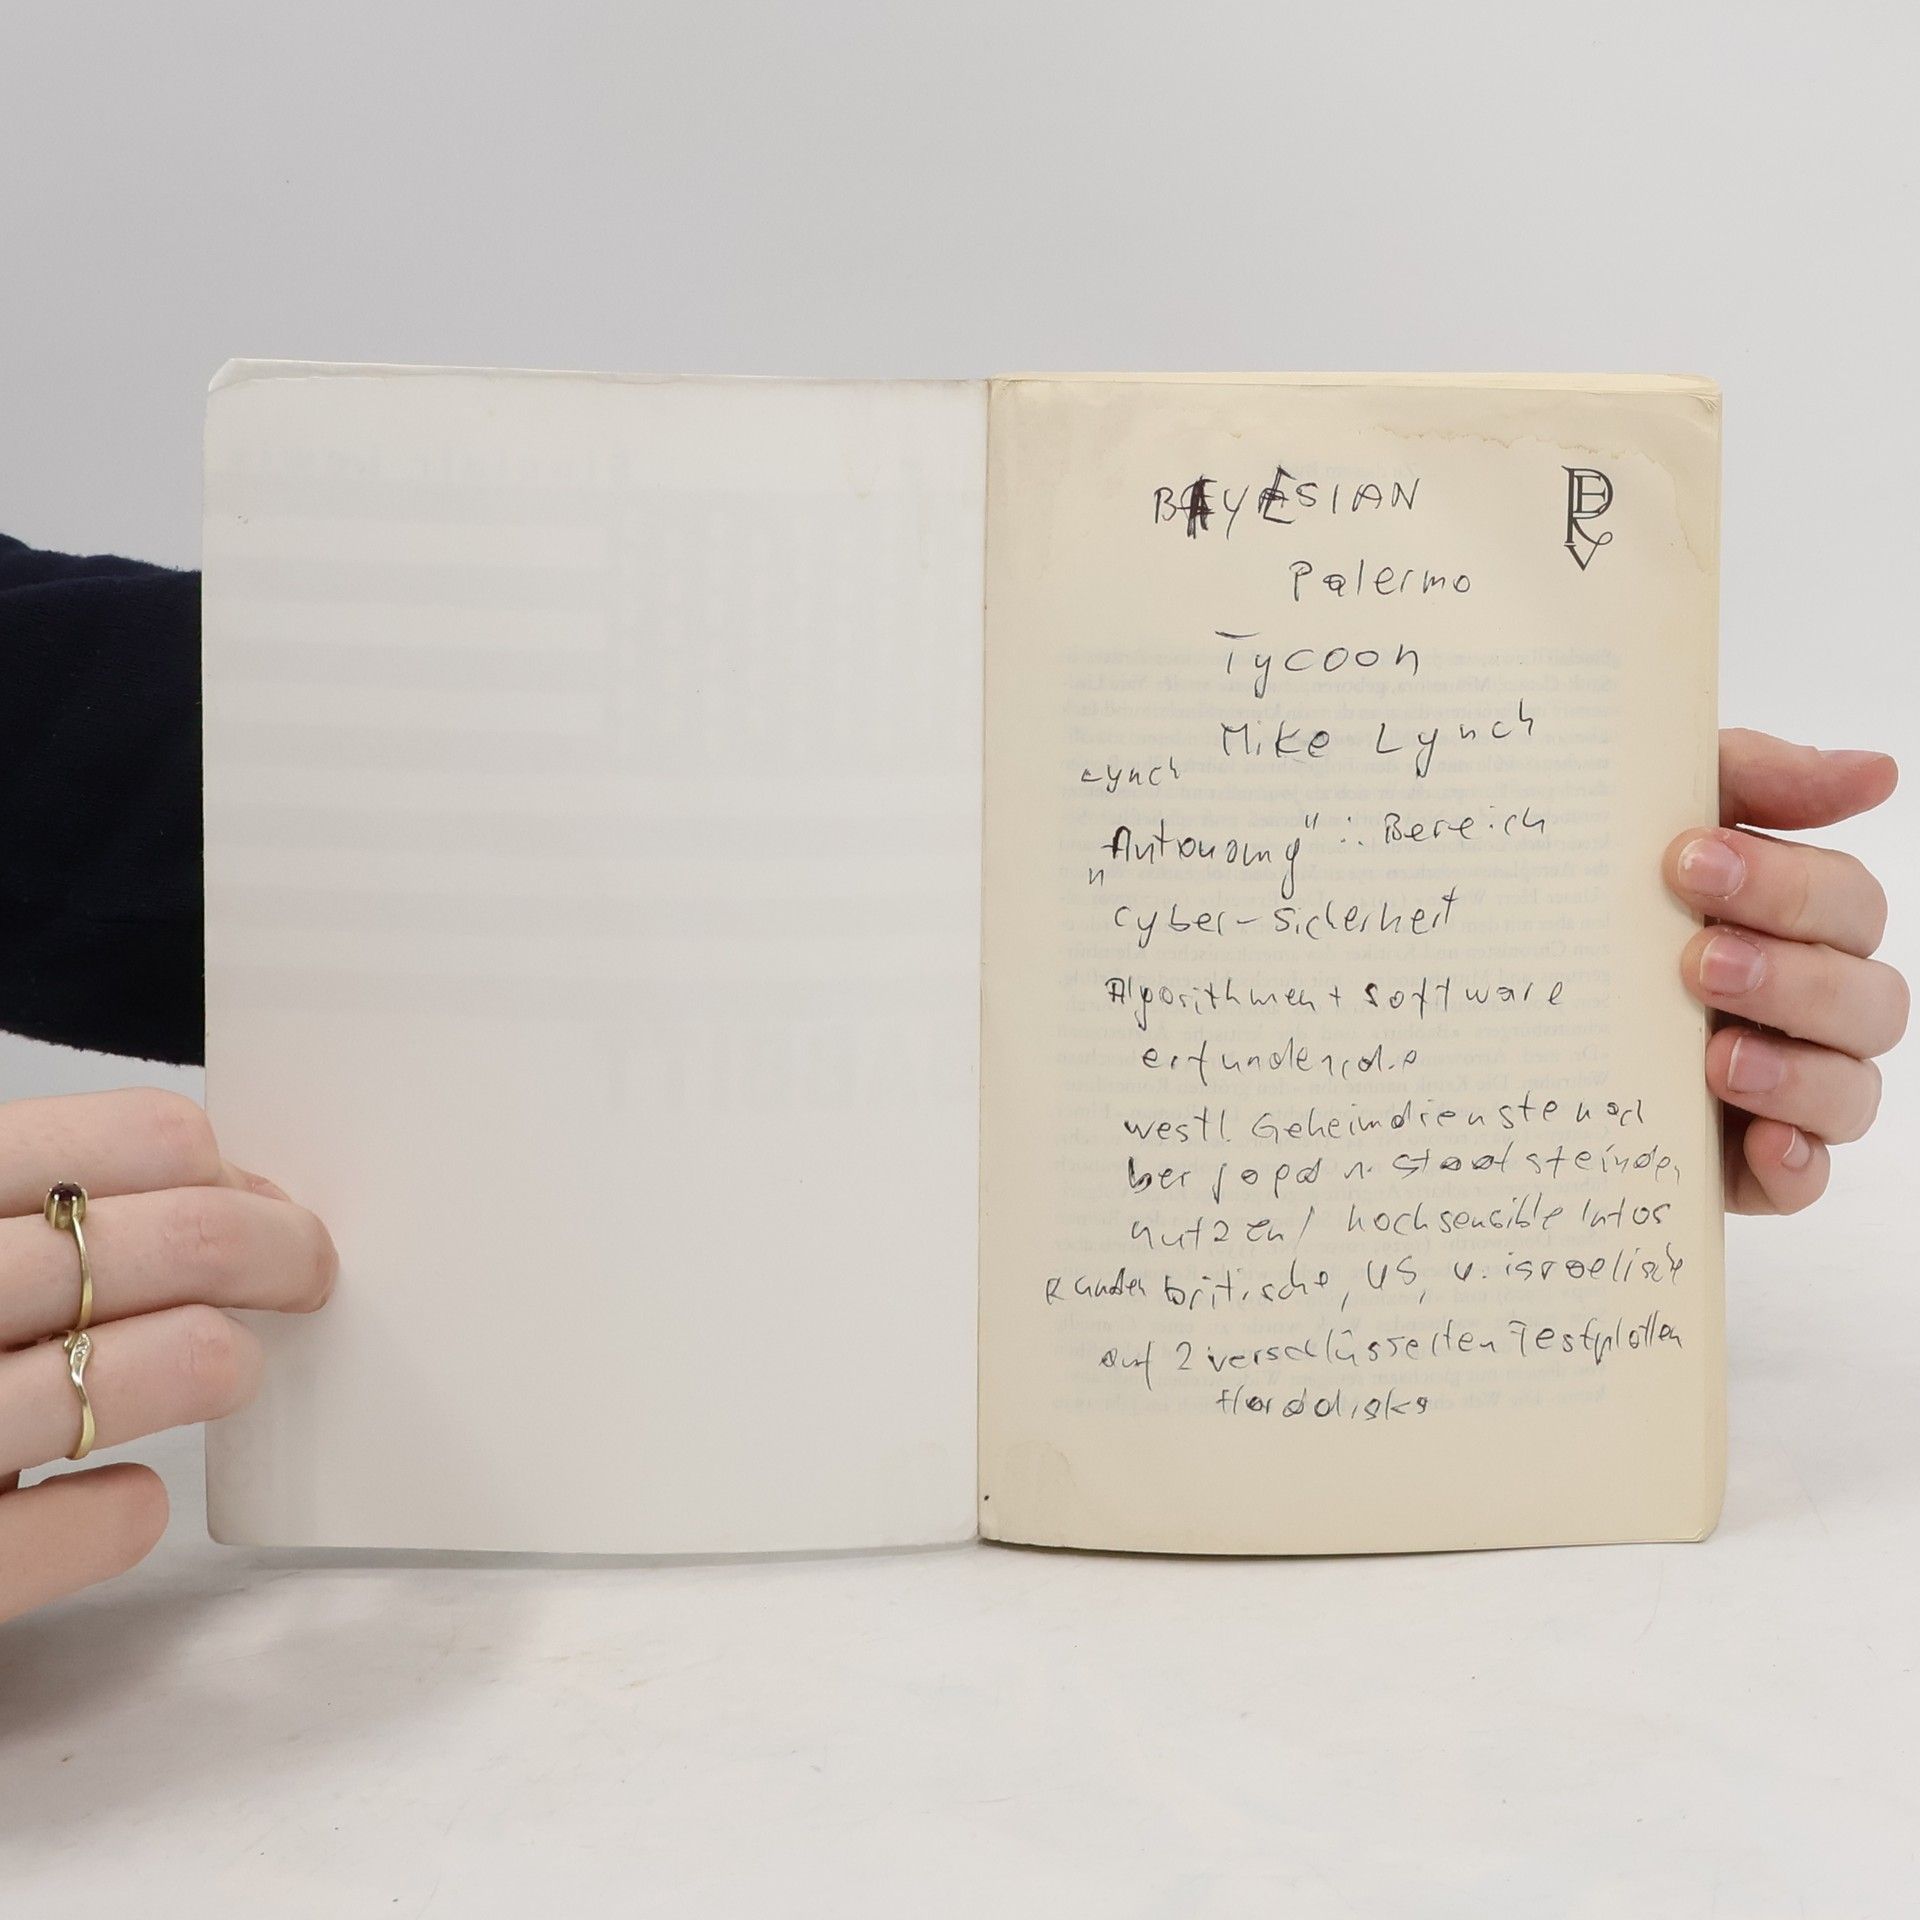 BAYESIAN
Palermo
Tycoon
Mike Lynch
Lynch
"Autonomy" : Bereich
cyber-Sicherheit
Algorithmen + software
erfunden, die
westl. Geheimdienste nach
u. Staatsfeinden
nutzen / hochsensible Infos
Kunden britische, US, u. israelische
auf 2 verschlüsselten Festplatten
Harddisks